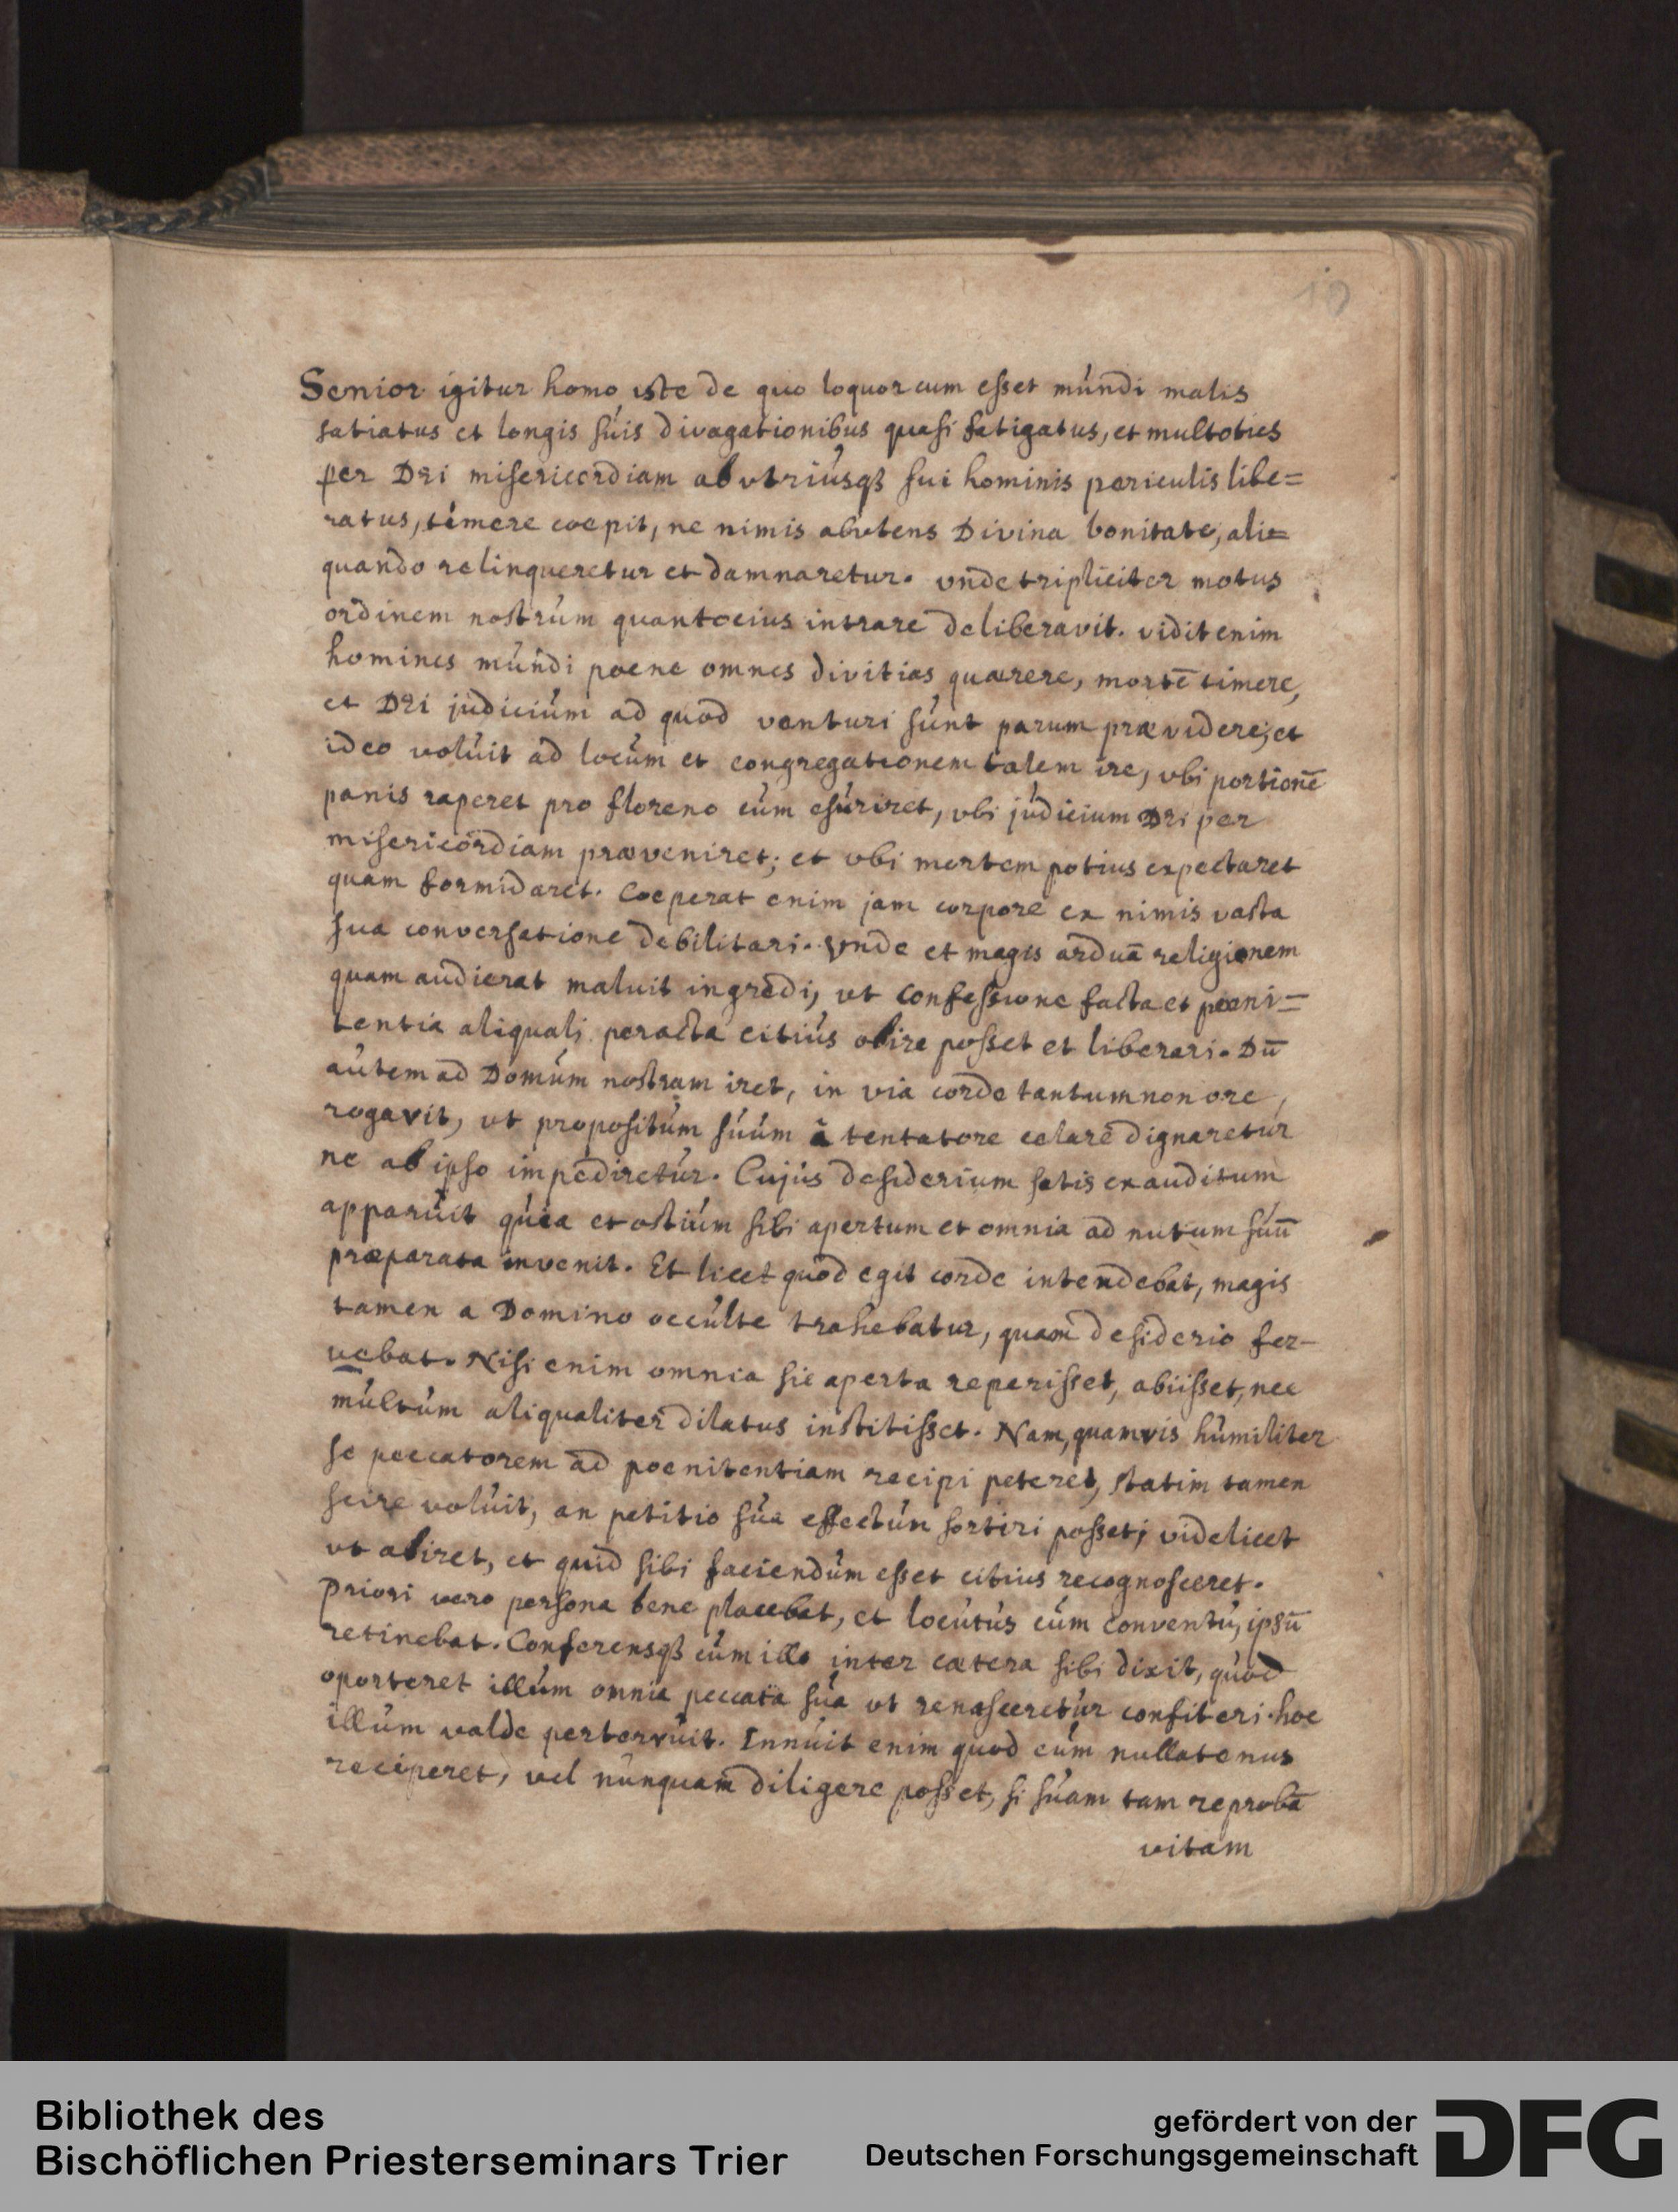 10
Senior igitur homo iste de quo loquor cum esset múndi malis
satiatus et longis súis divagationibus quasi fatigatus, et multoties
per Dei misericordiam ab vtriúsqȝ sui hominis periculis libe=
ratus, timere coepit, ne nimis abutens Divina bonitate, ali=
quando relinqueretur et damnaretur. vnde tripliciter motus
ordinem nostrúm quantocius intrare deliberavit. vidit enim
homines múndi poene omnes divitias quærere, mortē timere,
et Dei júdiciúm ad quod venturi súnt parum prævidere; et
ideo volúit ad locúm et congregationem talem ire, vbi portionē
panis raperet pro floreno cúm esúriret, vbi júdicium Dei per
misericordiam præveniret; et vbi mortem potius expectaret
quam formidaret. Coeperat enim jam corpore ex nimis vasta
sua conversatione debilitari. Vnde et magis arduā religionem
quam audierat maluit ingredi, vt confessione facta et poeni=
tentia aliquali peracta citiús obire posset et liberari. Dū
aútem ad Domúm nostram iret, in via corde tantum non ore,
rogavit, vt propositúm súúm à tentatore celare dignaretúr
ne ab ipso impediretúr. Cujús desiderium satis exauditum
apparúit qúia et ostiúm sibi apertum et omnia ad nutum súū
præparata invenit. Et licet quod egit corde intendebat, magis
tamen a Domino occúlte trahebatur, quam desiderio fer-
vebat. Nisi enim omnia sic aperta reperisset, abiisset, nec
múltúm aliqualiter dilatus institisset. Nam, quamvis húmiliter
se peccatorem ad poenitentiam recipi peteret, statim tamen
scire volúit, an petitio súa effectúm sortiri posset; videlicet
vt abiret, et quid sibi faciendúm esset citius recognosceret.
Priori vero persona bene placebat, et locútús cúm conventú, ipsū
retinebat. Conferensqȝ cúm illo inter cætera sibi dixit, quód
oporteret illúm omnia peccata súa vt renasceretúr confiteri. hoc
illúm valde perterruit. Innúit enim quod cúm nullatenus
reciperet, vel núnquam diligere posset, si súam tam reprobā
vitam
Bibliothek des
Bischöflichen Priesterseminars Trier
gefördert von der
Deutschen Forschungsgemeinschaft
DFG